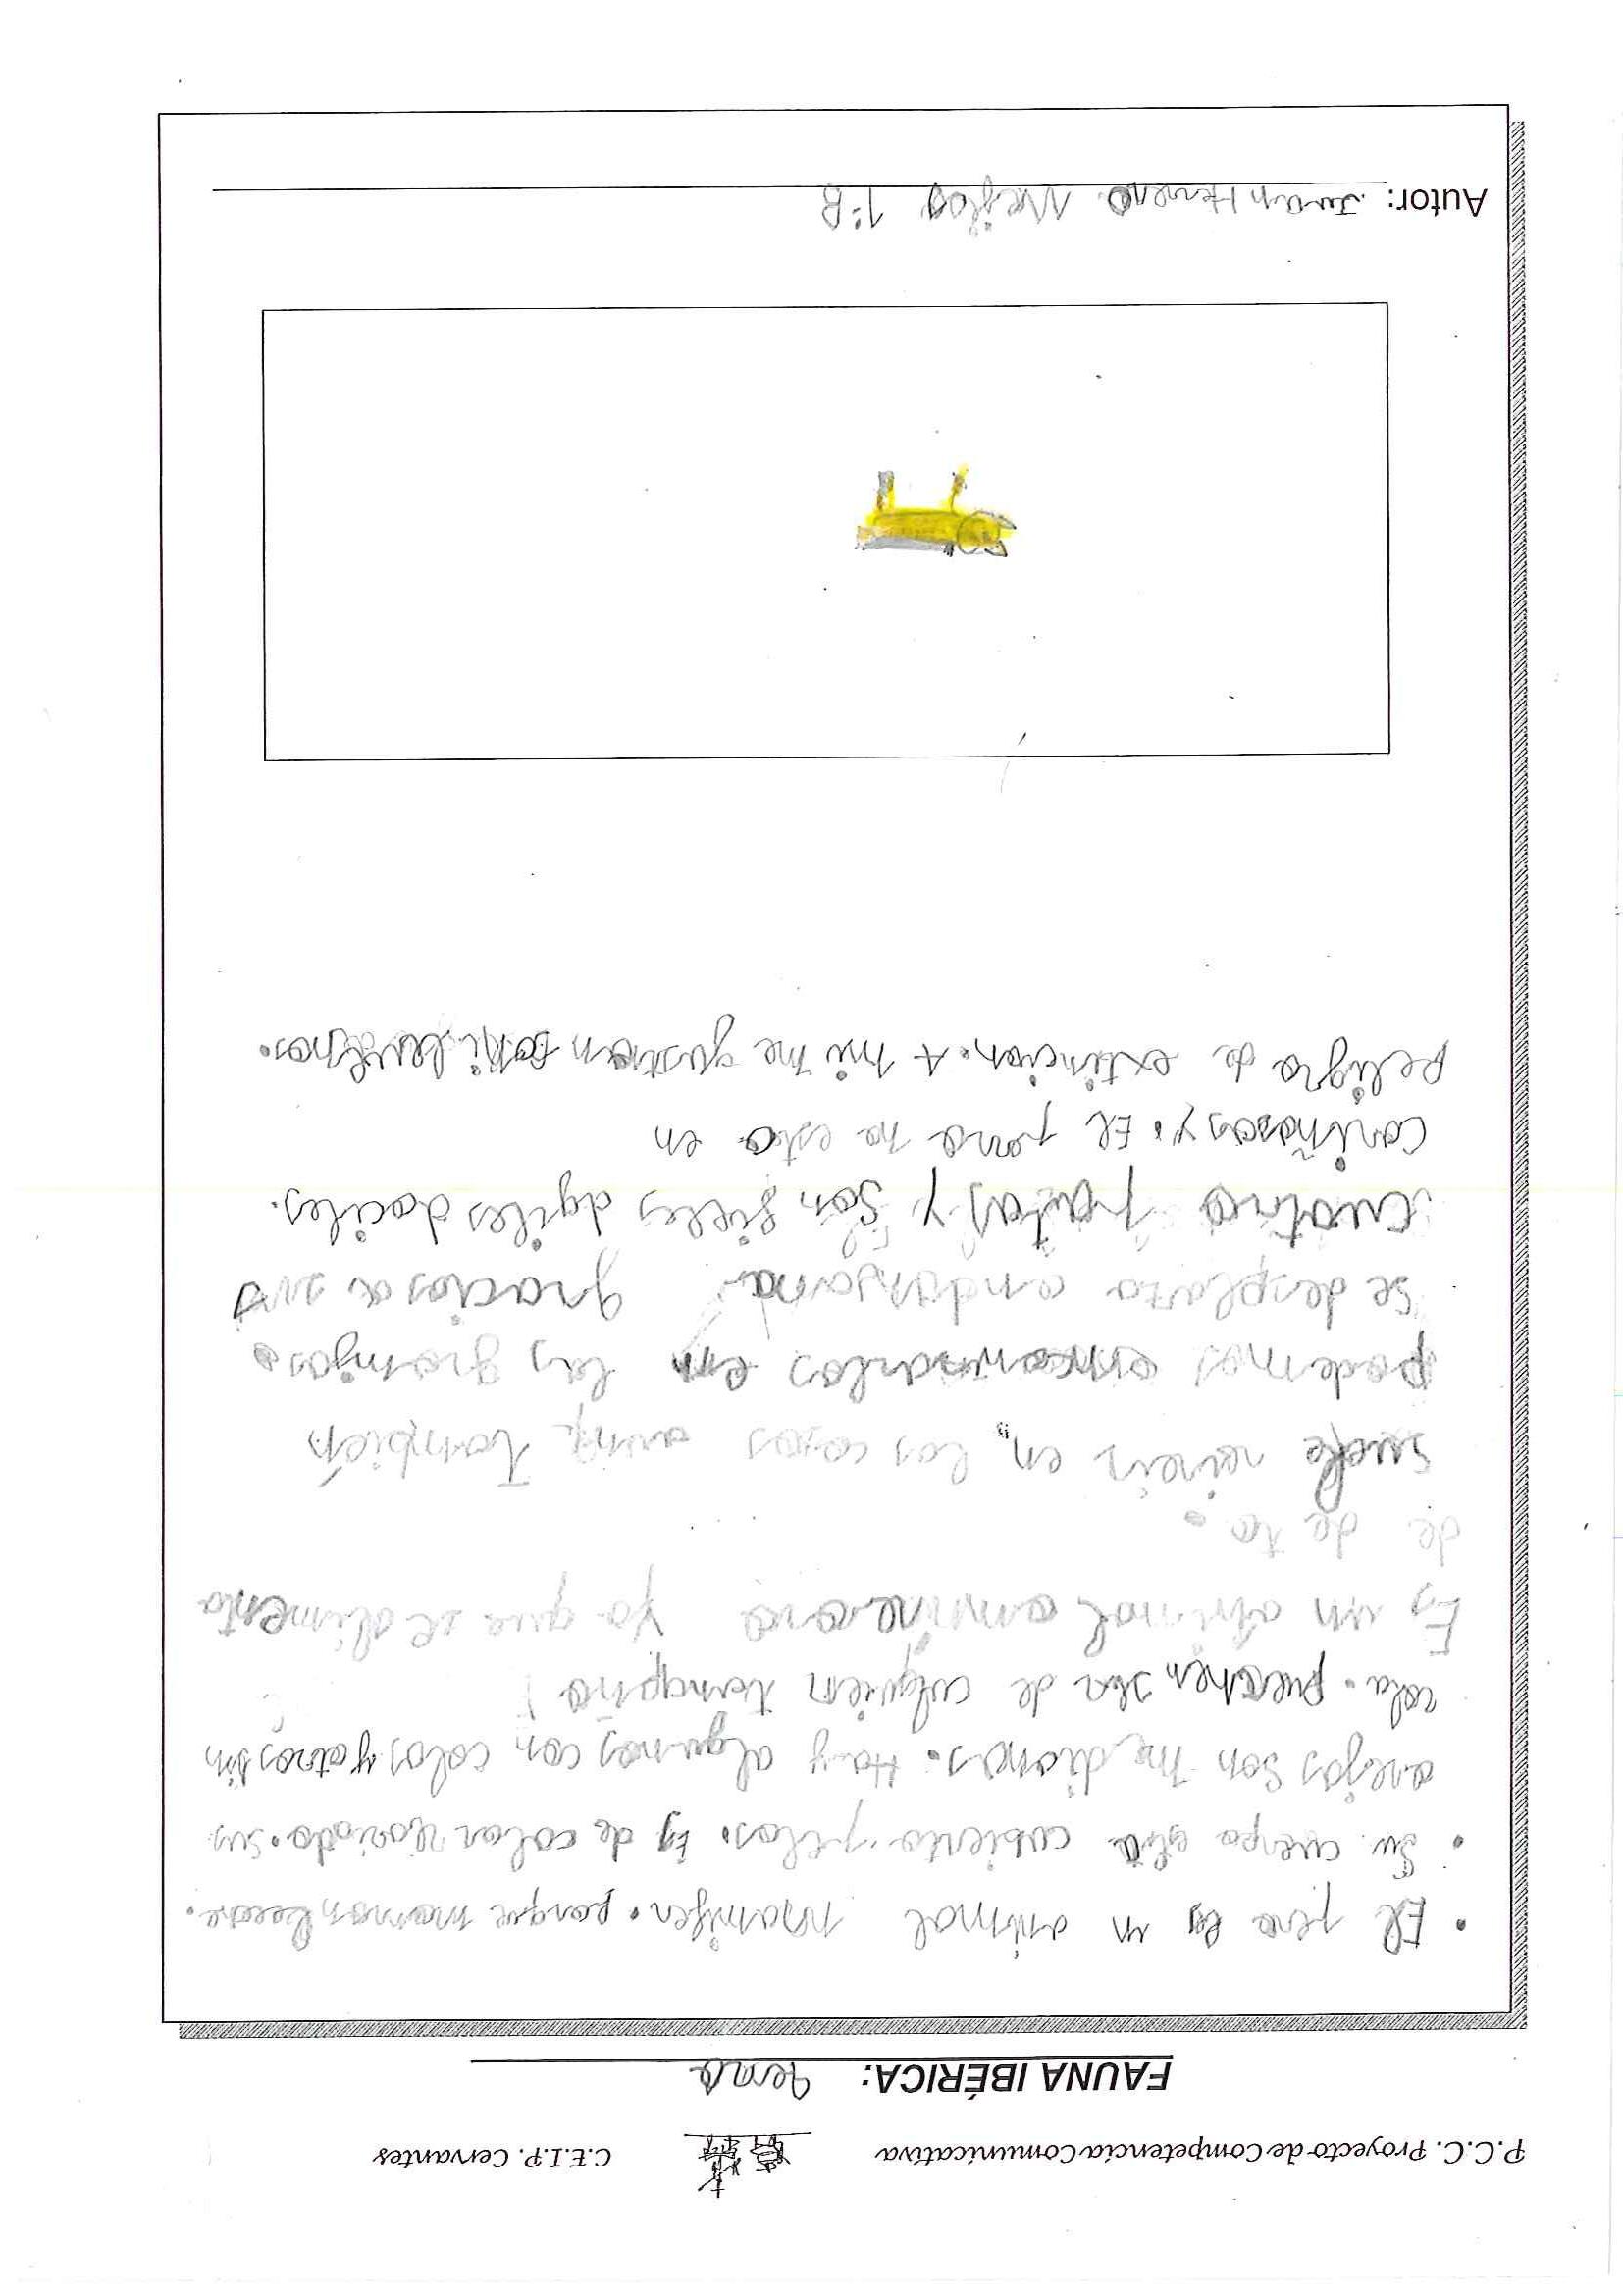 P.C.C. Proyecto de Competencia Comunicativa C.E.I.P. Cervantes
FAUNA IBÉRICA: Pero
• El pero es un animal mamífer. porque maman leecre.
• Su cuerpo está cubierto pelos. Es de color variado. Sus
orejas son medianas. Hay algunos con colas y otros sin
cola. Pueden ser de culquien tamapño
Es un animal omnivoro ya que se alimenta
de de to.
suele vivir en las casas También
podemos encontrarlos em las granjas.
Se desplaza andanando gracias a sus
cuatro patas y son fieles agiles dociles.
cariñosos y. El pero no esta en
peligro de extincion. A mi me gustan
Autor: Iván Herrero 1ºB